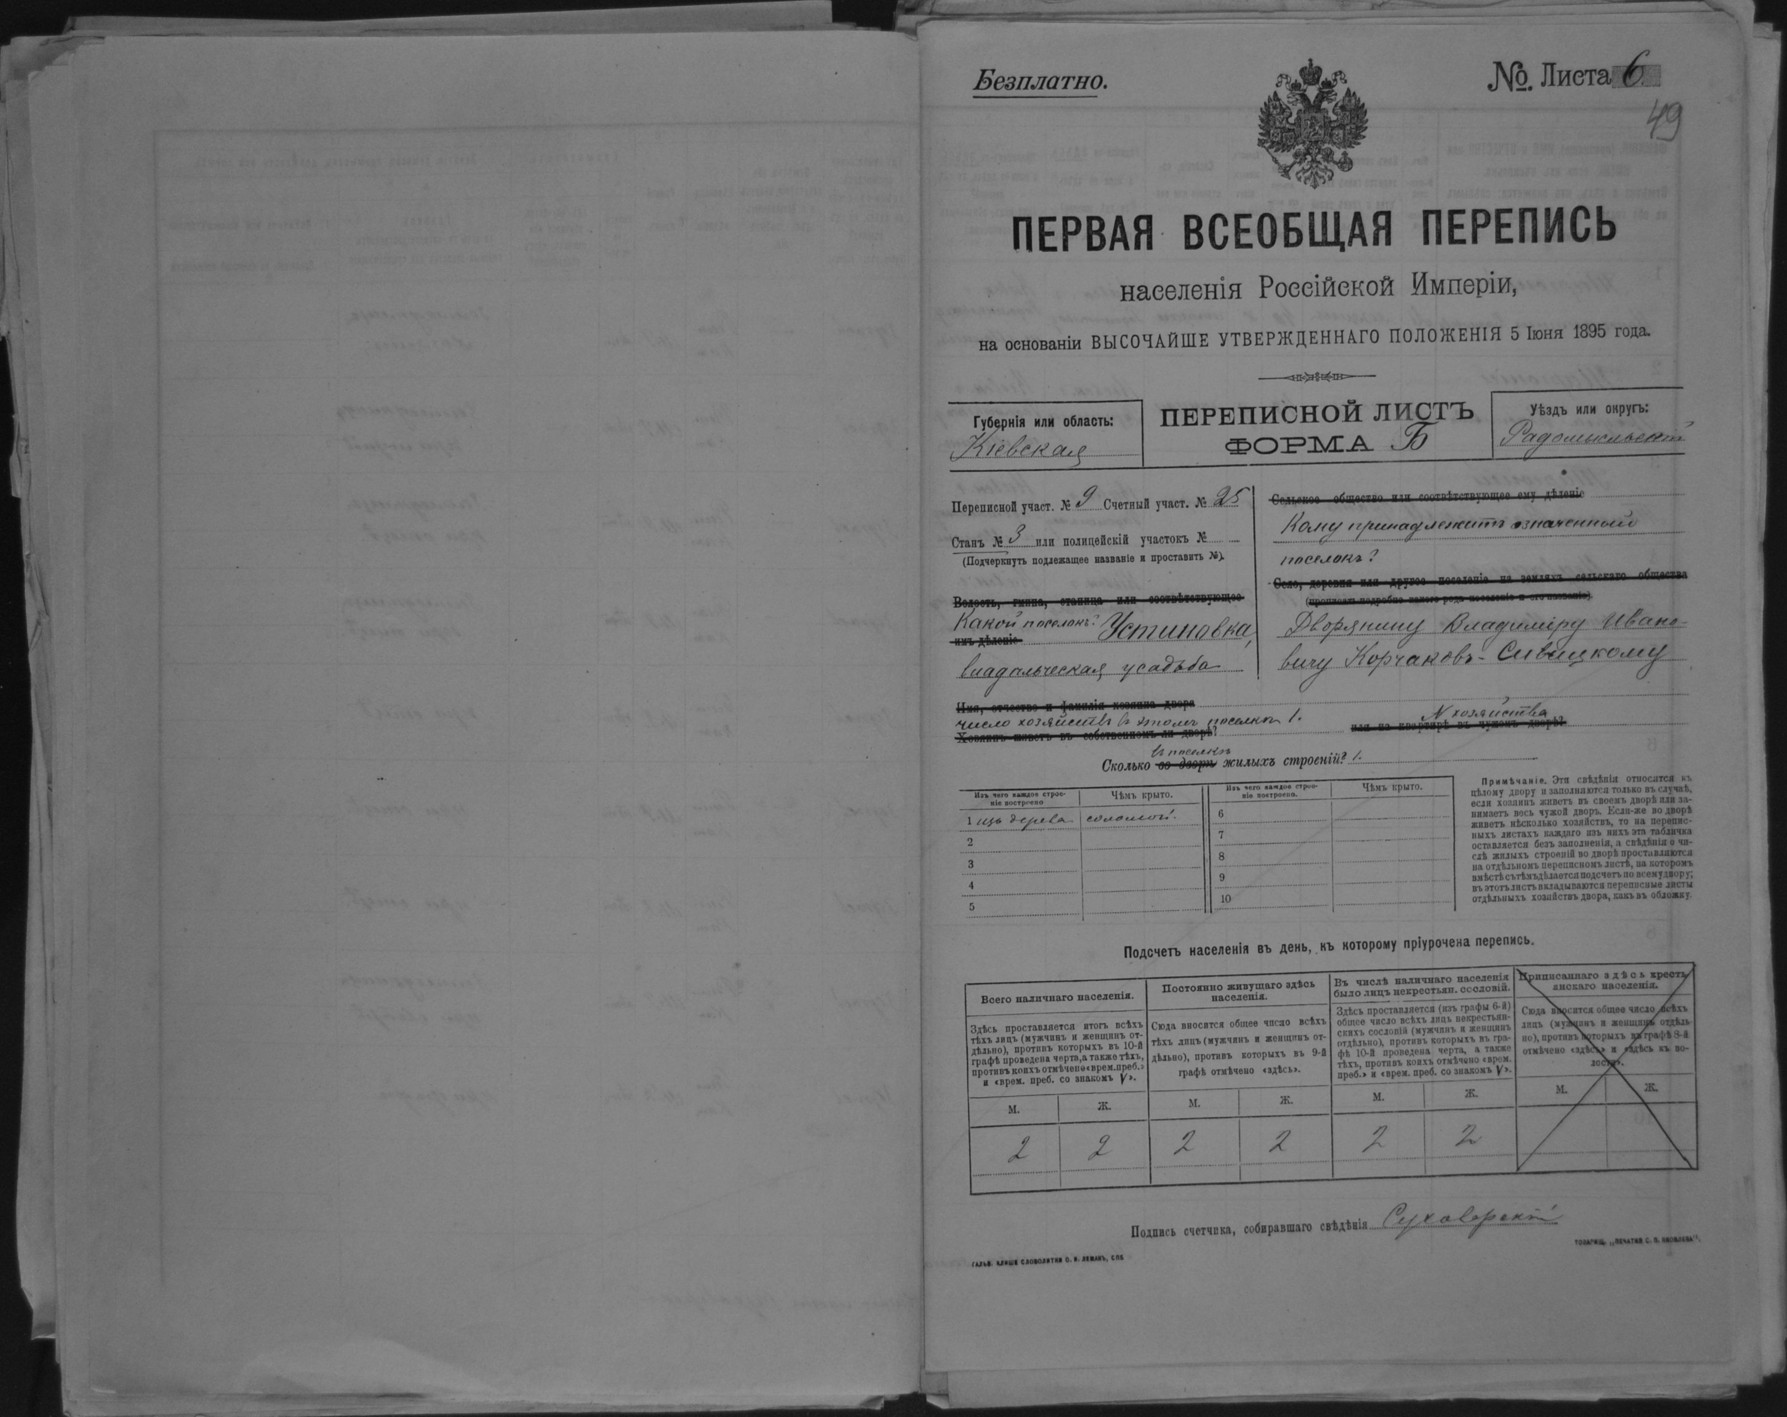 Безплатно.
№. Листа 6
49
ПЕРВАЯ ВСЕОБЩАЯ ПЕРЕПИСЬ
населенія Россійской Имперіи,
на основаніи ВЫСОЧАЙШЕ УТВЕРЖДЕННАГО ПОЛОЖЕНІЯ 5 Іюня 1895 года.
Губернія или область:
Кіевская
ПЕРЕПИСНОЙ ЛИСТЪ
ФОРМА Б
Уѣздъ или округъ:
Радомысльскій
Переписной участ. № 9 Счетный участ. № 25
Станъ № 3 или полицейскій участокъ №
(Подчеркнуть подлежащее названіе и проставить №).
Волость, гмина, станица или соотвѣтствующее
Какой поселокъ? Устиновка,
имъ дѣленіе
владѣльческая усадьба
Сельское общество или соотвѣтствующее ему дѣленіе
Кому принадлежитъ означенный
поселокъ?
Село, деревня или другое поселеніе на земляхъ сельскаго общества
(прописать подробно какого рода поселеніе и его названіе)
Дворянину Владиміру Ивано-
вичу Корчаковъ-Сивицкому
Имя, отчество и фамилія хозяина двора
число хозяйствъ въ этомъ поселкѣ 1.
N хозяйства
Хозяинъ живетъ въ собственномъ ли дворѣ?
или на квартирѣ въ чужомъ дворѣ?
въ поселкѣ
Сколько во дворѣ жилыхъ строеній? 1.
Изъ чего каждое строе-
ніе построено
Чѣмъ крыто.
Изъ чего каждое строе-
ніе построено.
Чѣмъ крыто.
1 изъ дерева соломой.
2
3
4
5
6
7
8
9
10
Примѣчаніе. Эти свѣдѣнія относятся къ
цѣлому двору и заполняются только въ случаѣ,
если хозяинъ живетъ въ своемъ дворѣ или за-
нимаетъ весь чужой дворъ. Если-же во дворѣ
живетъ нѣсколько хозяйствъ, то на перепис-
ныхъ листахъ каждаго изъ нихъ эта табличка
оставляется безъ заполненія, а свѣдѣнія о чи-
слѣ жилыхъ строеній во дворѣ проставляются
на отдѣльномъ переписномъ листѣ, на которомъ
вмѣстѣ съ тѣмъ дѣлается подсчетъ по всему двору;
въ этотъ листъ вкладываются переписные листы
отдѣльныхъ хозяйствъ двора, какъ въ обложку.
Подсчетъ населенія въ день, къ которому пріурочена перепись.
Всего наличнаго населенія.
Здѣсь проставляется итогъ всѣхъ
тѣхъ лицъ (мужчинъ и женщинъ от-
дѣльно), противъ которыхъ въ 10-й
графѣ проведена черта, а также тѣхъ,
противъ коихъ отмѣчено «врем. преб.»
и «врем. преб. со знакомъ V».
Постоянно живущаго здѣсь
населенія.
Сюда вносится общее число всѣхъ
тѣхъ лицъ (мужчинъ и женщинъ от-
дѣльно), противъ которыхъ въ 9-й
графѣ отмѣчено «здѣсь».
Въ числѣ наличнаго населенія
было лицъ некрестьян. сословій.
Здѣсь проставляется (изъ графы 6-й)
общее число всѣхъ лицъ некрестьян-
скихъ сословій (мужчинъ и женщинъ
отдѣльно), противъ которыхъ въ гра-
фѣ 10-й проведена черта, а также
тѣхъ, противъ коихъ отмѣчено «врем.
преб.» и «врем. преб. со знакомъ V».
Приписаннаго здѣсь кресть-
янскаго населенія.
Сюда вносится общее число всѣхъ
лицъ (мужчинъ и женщинъ отдѣль-
но), противъ которыхъ въ графѣ 8-й
отмѣчено «здѣсь» и «здѣсь въ во-
лости».
М. Ж. М. Ж. М. Ж. М. Ж.
2 2 2 2 2 2
Подпись счетчика, собиравшаго свѣдѣнія Суховерскій
ГАЛЬВ. КЛИШЕ СЛОВОЛИТНИ О. И. ЛЕМАНЪ, СПБ.
ТОВАРИЩ. „ПЕЧАТНЯ С. П. ЯКОВЛЕВА".